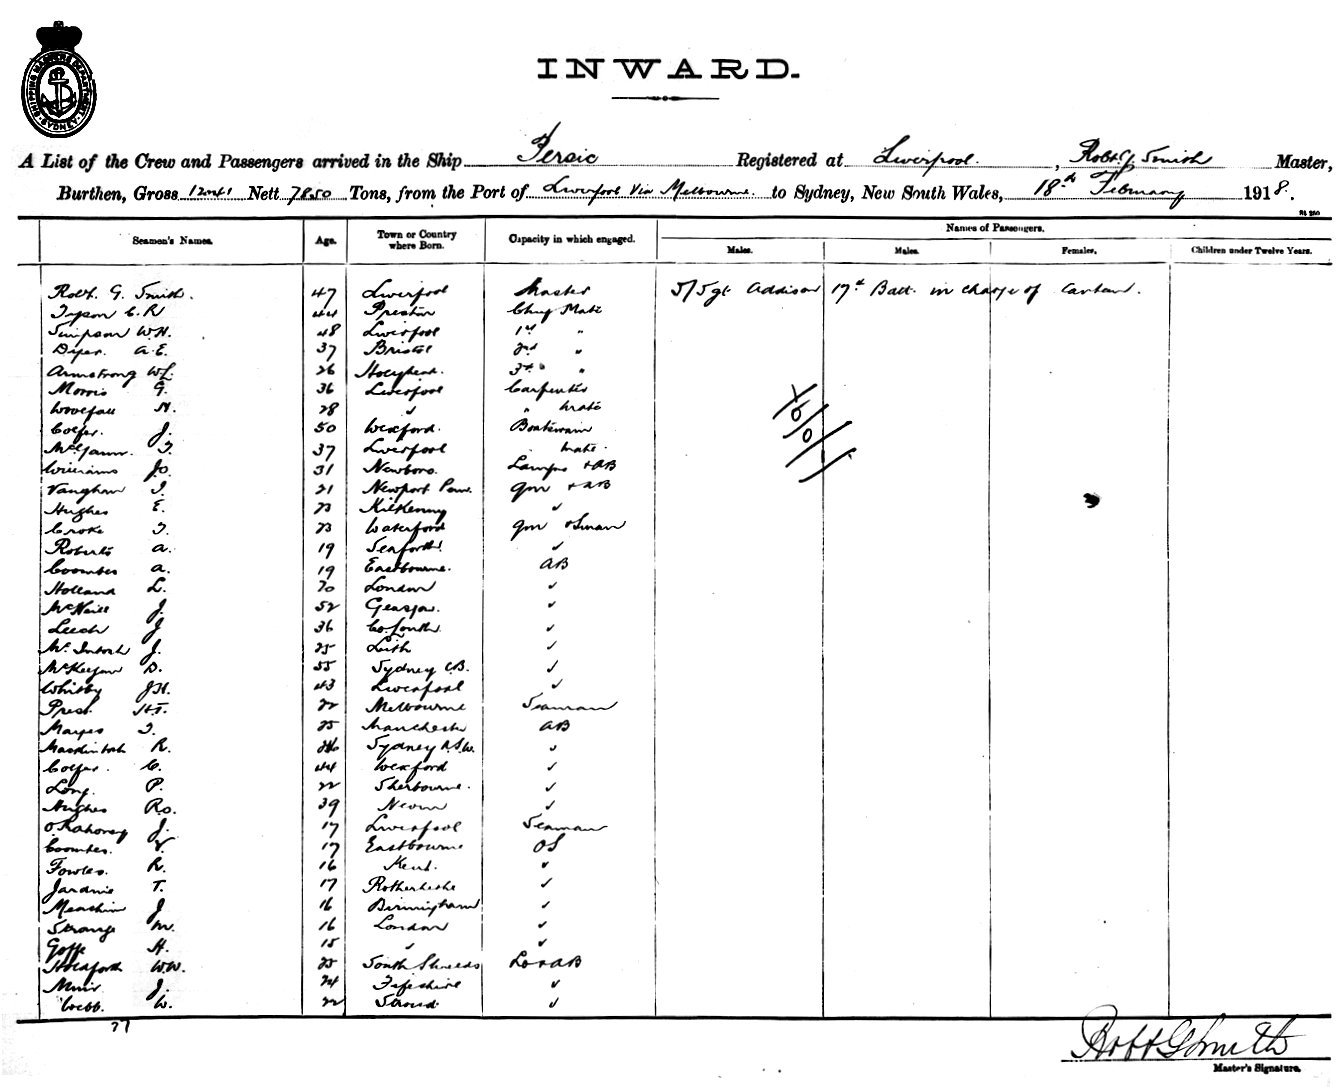 SHIPPING MASTERS DEPARTMENT SYDNEY
INWARD.
A List of the Crew and Passengers arrived in the Ship Persic Registered at Liverpool. , Robt G Smith Master,
Burthen, Gross 12041 Nett 7850 Tons, from the Port of Liverpool Via Melbourne. to Sydney, New South Wales, 18th February 1918.
Seamen's Names. Age. Town or Country where Born. Capacity in which engaged. Names of Passengers.
Males. Males. Females. Children under Twelve Years.
Robt. G. Smith. 47 Liverpool Master S/Sgt Addison 17th Batt. in charge of Canteen.
Tyson C.R 44 Preston Chief Mate
Simpson W.H. 48 Liverpool 1st "
Dyer. A.E. 37 Bristol 2nd "
Armstrong W.L. 26 Holyhead. 3rd "
Morris G. 36 Liverpool Carpenter
Woodfall H. 28 ✓ " Mate
Colfer. J. 50 Wexford. Boatswain
McGann. T. 37 Liverpool mate.
Williams Jo. 31 Newboro. Lamps & AB
Vaughan T. 21 Newport Pem. Qm & AB
Hughes E. 23 Kilkenny ✓
Croke T. 23 Waterford Qm & Sman
Roberts A. 19 Seaforth. ✓
Coombes A. 19 Eastbourne. AB
Holland L. 20 London ✓
McNeill J. 52 Glasgow. ✓
Leech J 36 ✓
McIntosh J. 25 Leith ✓
D. 55 Sydney C.B. ✓
Whitby J.H. 43 Liverpool ✓
22 Melbourne Seaman
Mayes T. 25 Manchester AB
Mackintosh R. Sydney N.S.W. ✓
Colfer. C. 44 Wexford ✓
Long. P. 22 Sherbourne. ✓
Hughes Ro. 39 Nevin ✓
O'Mahoney J. 17 Liverpool Seaman
Coombes. V. 17 Eastbourne OS
Fowles. R. 16 Kent. ✓
Jardine T. 17 Rotherhithe ✓
J. 16 Birmingham ✓
Strange M. 16 London ✓
Goffe H. 15 ✓ ✓
W.W. 25 South Shields AB
Muir J. 24 Fifeshire ✓
Webb. W. 22 Stroud ✓
37
Robt G Smith
Master's Signature.